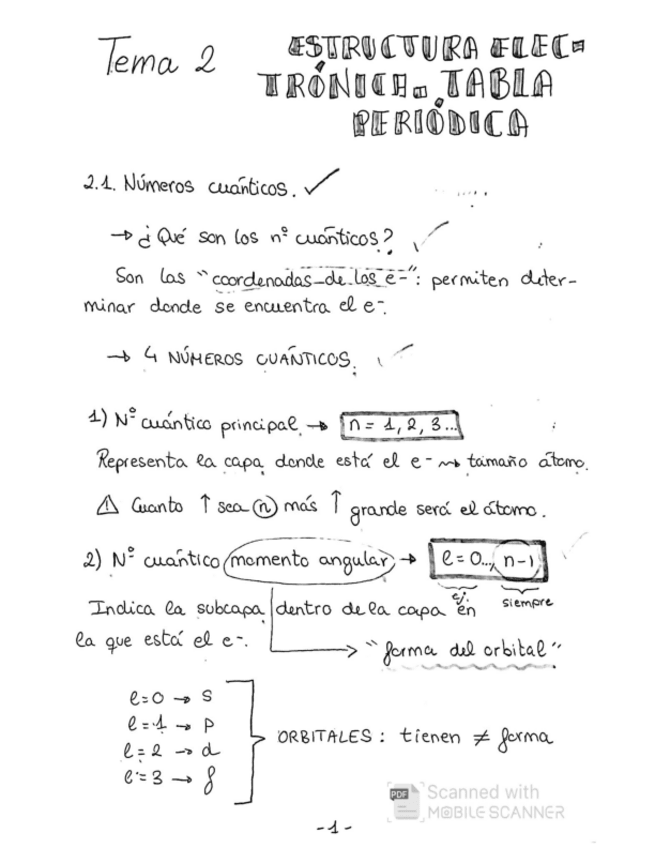 Tema 2
ESTRUCTURA ELEC-
TRÓNICA. TABLA
PERIÓDICA
2.1. Números cuánticos. ✓
→ ¿Qué son los nº cuánticos? ✓
Son las "coordenadas de los e-": permiten deter-
minar donde se encuentra el e-.
→ 4 NÚMEROS CUÁNTICOS.
1) Nº cuántico principal → n = 1, 2, 3...
Representa la capa donde está el e- ⇝ tamaño átomo.
⚠ Cuanto ↑ sea n más ↑ grande será el átomo.
2) Nº cuántico momento angular → l = 0..., n-1
ej. siempre
Indica la subcapa dentro de la capa en
la que está el e-. → "forma del orbital"
l=0 → s
l=1 → p
l=2 → d
l=3 → f
ORBITALES: tienen ≠ forma
-1-
PDF Scanned with
MOBILE SCANNER